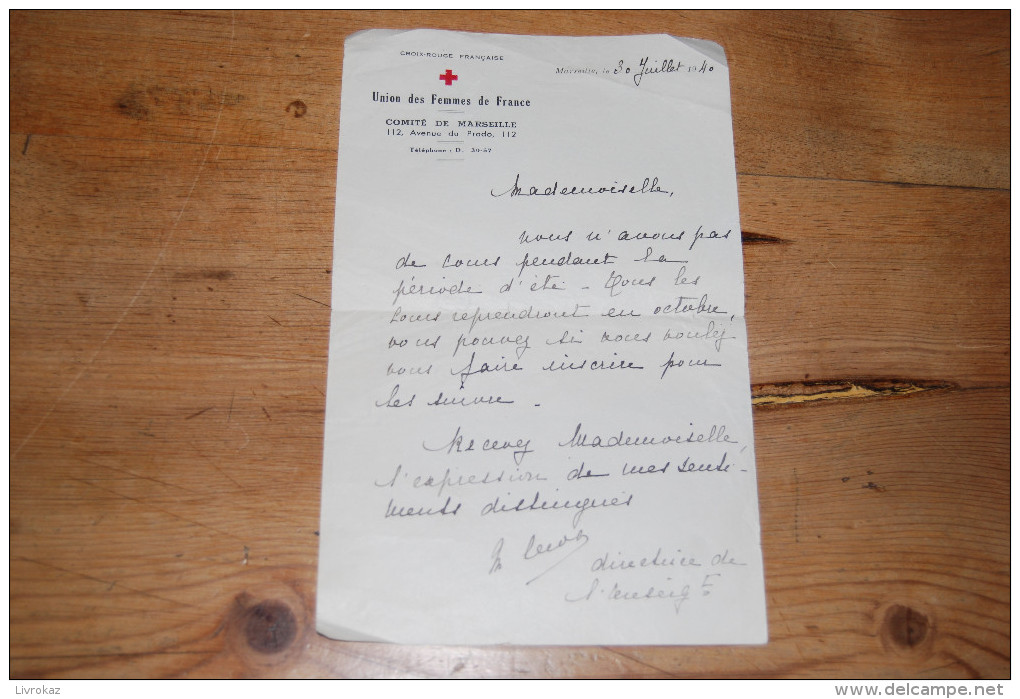 CROIX-ROUGE FRANÇAISE
Union des Femmes de France
COMITÉ DE MARSEILLE
112, Avenue du Prado, 112
Téléphone : D. 30-57
Marseille, le 30 Juillet 1940
Mademoiselle,
nous n'avons pas
de cours pendant la
période d'été - Tous les
cours reprendront en octobre,
vous pouvez si vous voulez
vous faire inscrire pour
les suivre -
Recevez Mademoiselle,
l'expression de mes senti-
ments distingués
directrice de
l'enseigt
Livrokaz
www.delcampe.net